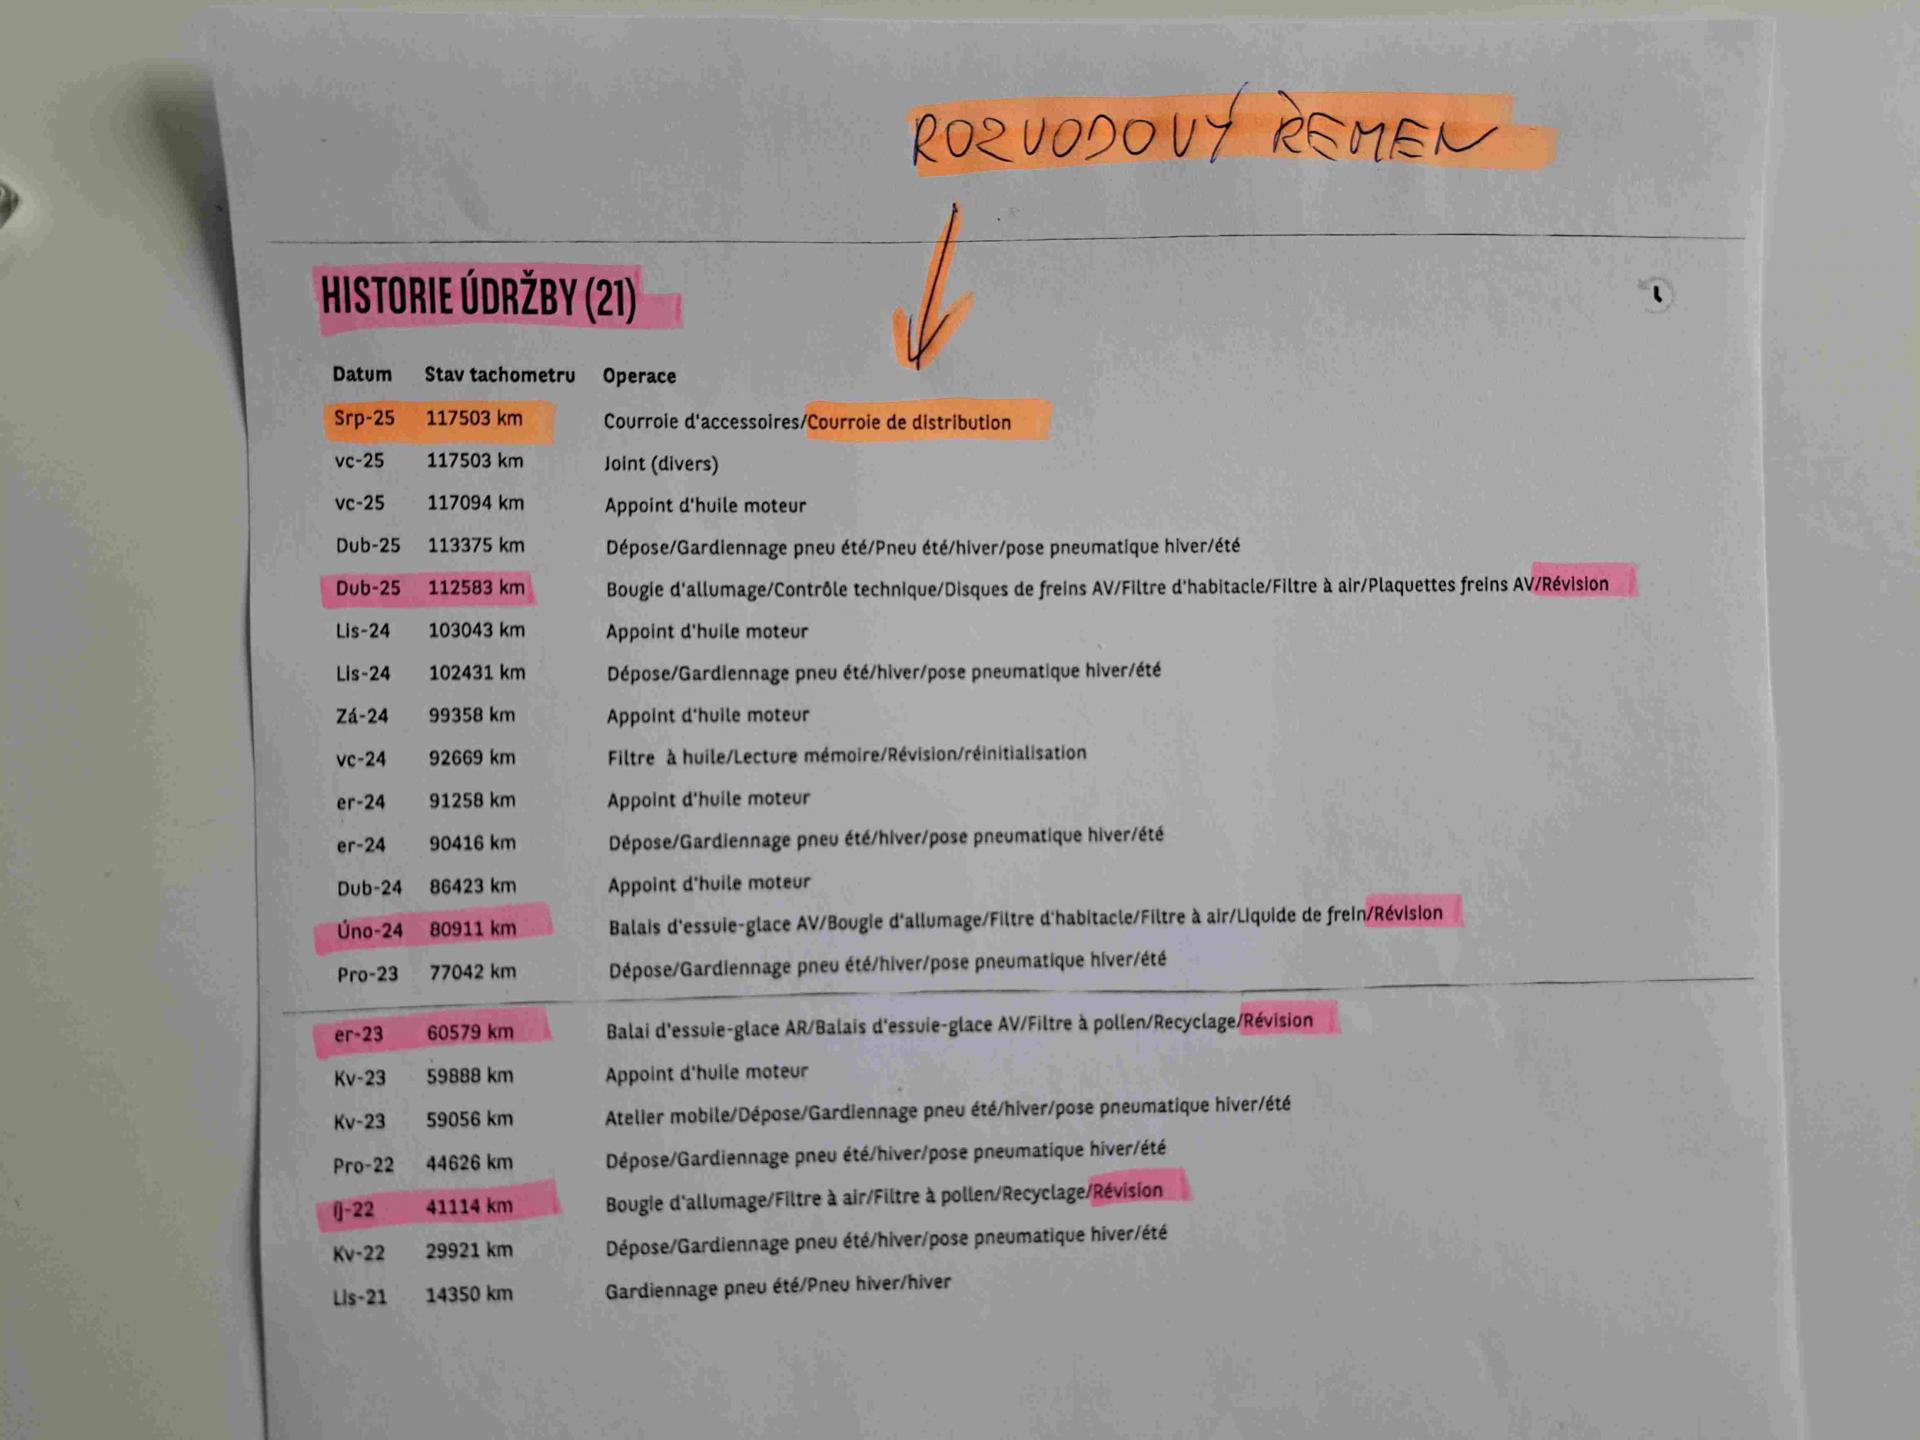 ROZVODOVÝ ŘEMEN
HISTORIE ÚDRŽBY (21)
Datum Stav tachometru Operace
Srp-25 117503 km Courroie d'accessoires/Courroie de distribution
vc-25 117503 km Joint (divers)
vc-25 117094 km Appoint d'huile moteur
Dub-25 113375 km Dépose/Gardiennage pneu été/Pneu été/hiver/pose pneumatique hiver/été
Dub-25 112583 km Bougie d'allumage/Contrôle technique/Disques de freins AV/Filtre d'habitacle/Filtre à air/Plaquettes freins AV/Révision
Lis-24 103043 km Appoint d'huile moteur
Lis-24 102431 km Dépose/Gardiennage pneu été/hiver/pose pneumatique hiver/été
Zá-24 99358 km Appoint d'huile moteur
vc-24 92669 km Filtre à huile/Lecture mémoire/Révision/réinitialisation
er-24 91258 km Appoint d'huile moteur
er-24 90416 km Dépose/Gardiennage pneu été/hiver/pose pneumatique hiver/été
Dub-24 86423 km Appoint d'huile moteur
Úno-24 80911 km Balais d'essuie-glace AV/Bougie d'allumage/Filtre d'habitacle/Filtre à air/Liquide de frein/Révision
Pro-23 77042 km Dépose/Gardiennage pneu été/hiver/pose pneumatique hiver/été
er-23 60579 km Balai d'essuie-glace AR/Balais d'essuie-glace AV/Filtre à pollen/Recyclage/Révision
Kv-23 59888 km Appoint d'huile moteur
Kv-23 59056 km Atelier mobile/Dépose/Gardiennage pneu été/hiver/pose pneumatique hiver/été
Pro-22 44626 km Dépose/Gardiennage pneu été/hiver/pose pneumatique hiver/été
íj-22 41114 km Bougie d'allumage/Filtre à air/Filtre à pollen/Recyclage/Révision
Kv-22 29921 km Dépose/Gardiennage pneu été/hiver/pose pneumatique hiver/été
Lis-21 14350 km Gardiennage pneu été/Pneu hiver/hiver